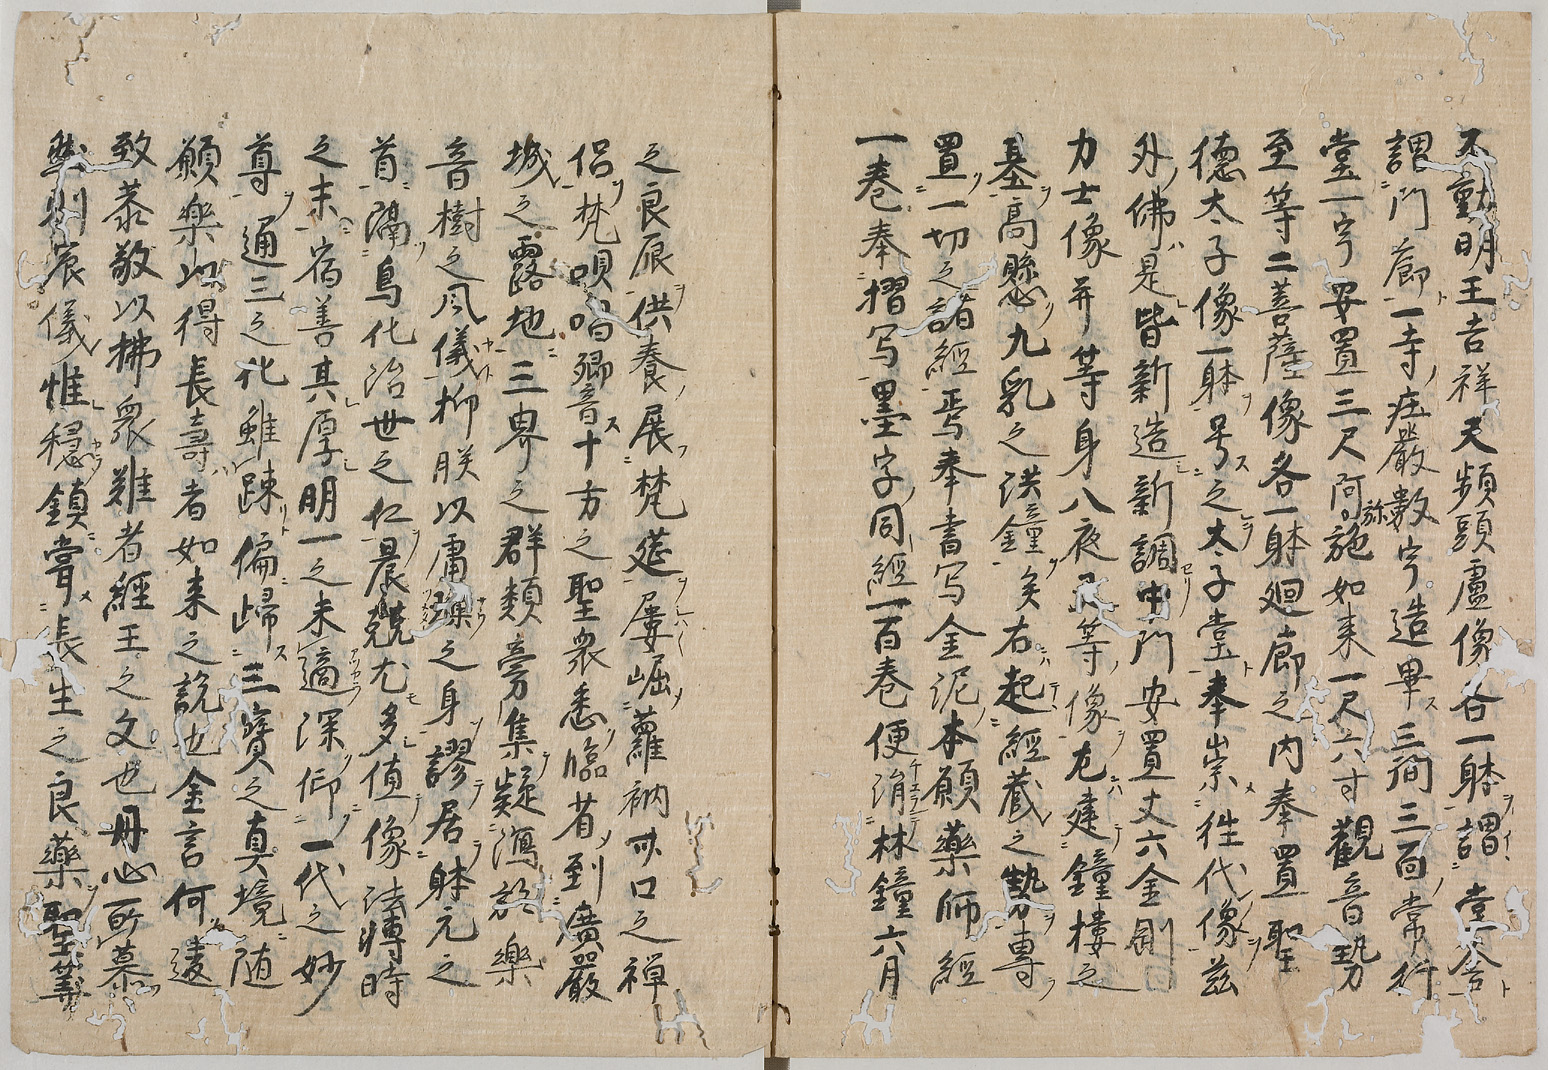 不動明王吉祥天頻頭盧像各一躰謂堂舎
謂門廊一寺庄嚴數宇造畢三間三面常行
堂一宇安置三尺阿弥施如来一尺六寸觀音勢
至等二菩薩像各一躰廻廊之内奉置聖
德太子像一躰号之太子堂奉崇往代像茲
外佛是皆新造新調中門安置丈六金剛
力士像并等身八夜叉等像尤建鐘樓之
基高懸九乳之洪鐘矣右起經蔵之勢専
置一切之諸經焉奉書写金泥本願藥師經
一巻奉摺写墨字同經一百巻便涓林鐘六月
之良辰供養展梵莚屢崛蘿衲卅口之禅
侶梵唄唱卿音十方之聖衆悉臨省到廣嚴
城之露地三界之群類旁集疑瀉於樂
音樹之風儀抑朕以庸璅之身謬居躰元之
首隔鳥化治世之仁晨兢尤多値像法轉時
之末宿善其厚明一之未適深仰一代之妙
尊通三之化雖踈偏歸三寳之真境随
願樂以得長壽者如来之説也金言何違
致恭敬以拂衆難者經王之文也丹心所慕
然則宸儀惟穏鎮甞長生之良藥聖筭